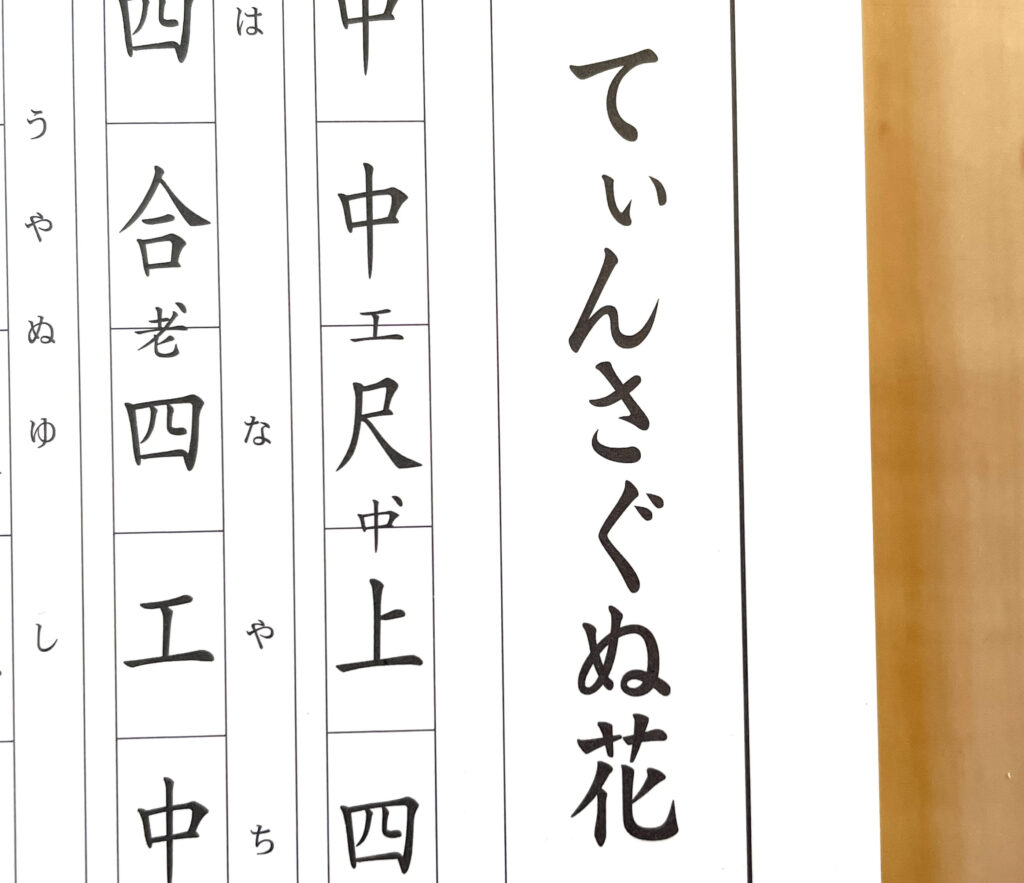 てぃんさぐぬ花
中
中
工
尺
中
上
四
は
な
や
ち
四
合
老
四
工
中
うやぬゆし